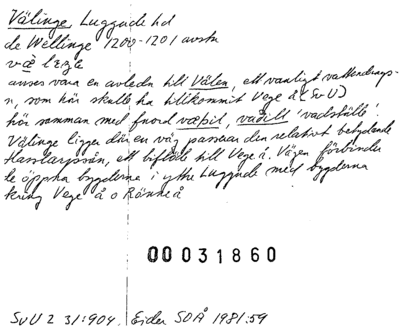 Välinge, Luggude hd
de Wellinge 1200-1201 avskr
væleŋe
anses vara en avledn till Välen, ett vanligt vattendrags-
n, som här skulle ha tillkommit Vege å (SvU)
hör samman med fnord væþil, vaðill 'vadställe'.
Välinge ligger där en väg passerar den relativt betydande
Hasslarpsån, ett biflöde till Vege å. Vägen förbinder
de öppna bygderna i yttre Luggude med bygderna
kring Vege å o Rönne å
00031860
SvU 2 31:904, Ejder SOÅ 1981:59